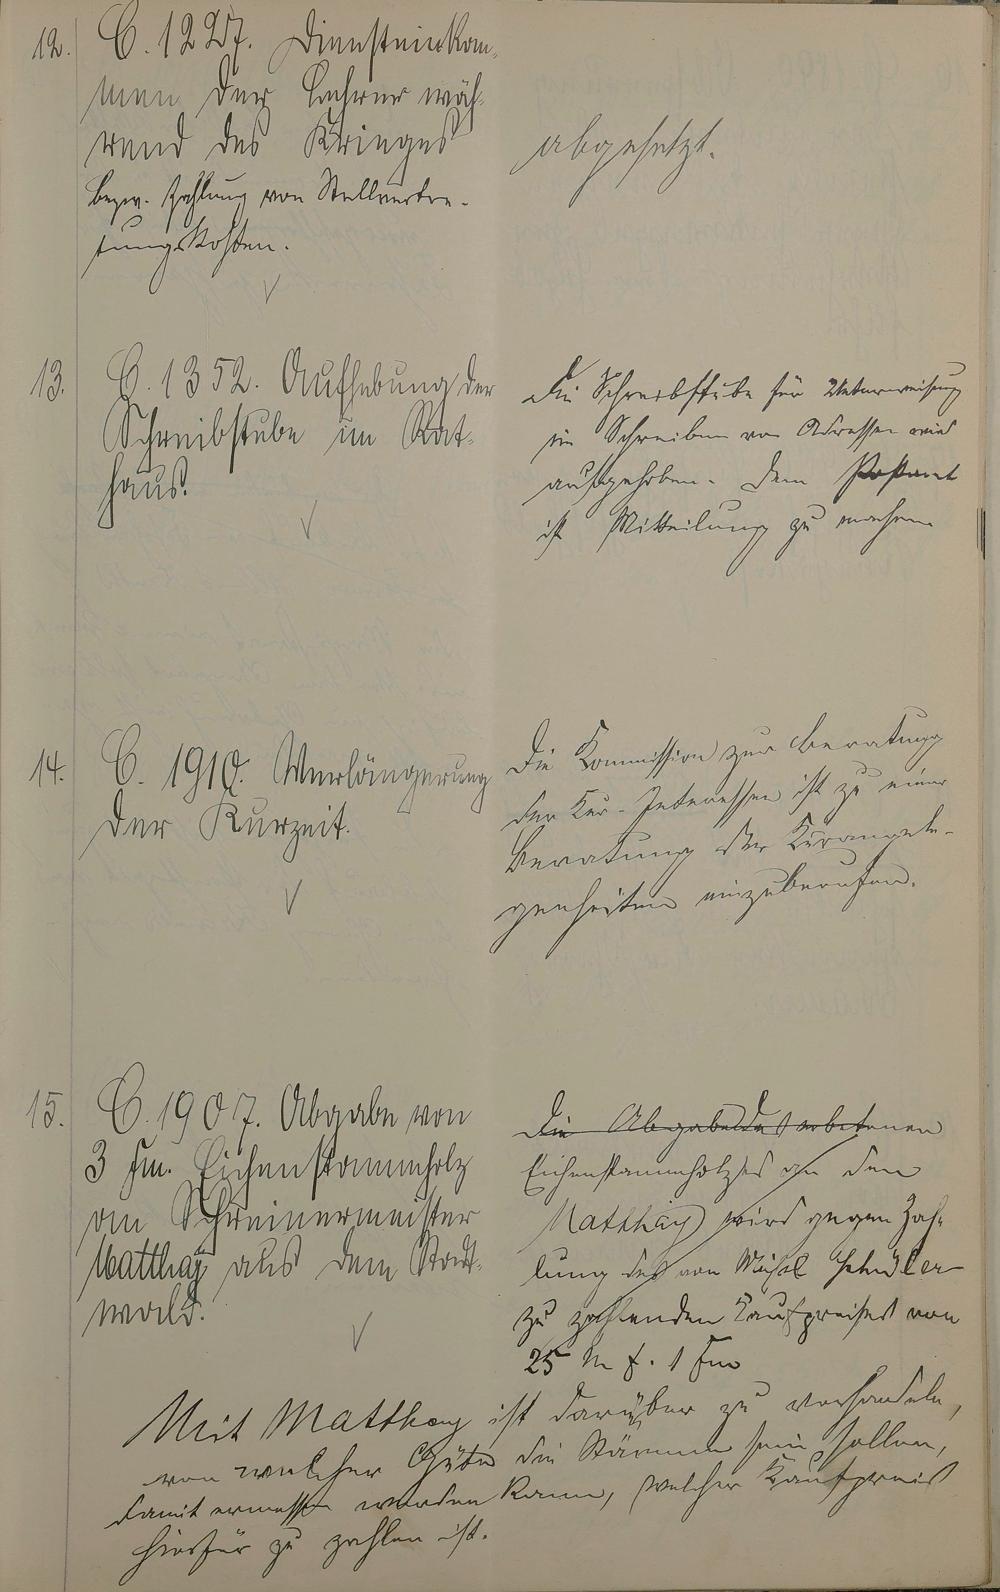 12. C. 1227. Diensteinkom-
men der Lehrer wäh-
rend des Krieges
bezw. Zahlung von Stellvertre-
tungskosten.
abgesetzt.
13. C. 1352. Aufhebung der
Schreibstube im Rat-
haus.
Die Schreibstube für Unterweisung
im Schreiben von Adressen wird
aufgehoben. Dem Postamt
ist Mitteilung zu machen
14. C. 1910. Verlängerung
der Kurzeit.
Die Kommission zur Beratung
der Kur-Interessen ist zu einer
Beratung der Kurangele-
genheiten einzuberufen.
15. C. 1907. Abgabe von
3 fm. Eichenstammholz
an Schreinermeister
Matthäy aus dem Stadt-
wald.
Die Abgabe des erbetenen
Eichenstammholzes an den
Matthäy wird gegen Zah-
lung des von
zu zahlenden Kaufpreises von
25 M f. 1 fm
Mit Matthäy ist darüber zu verhandeln,
von welcher Güte die Stämme sein sollen,
damit ermessen werden kann, welcher Kaufpreis
hierfür zu zahlen ist.